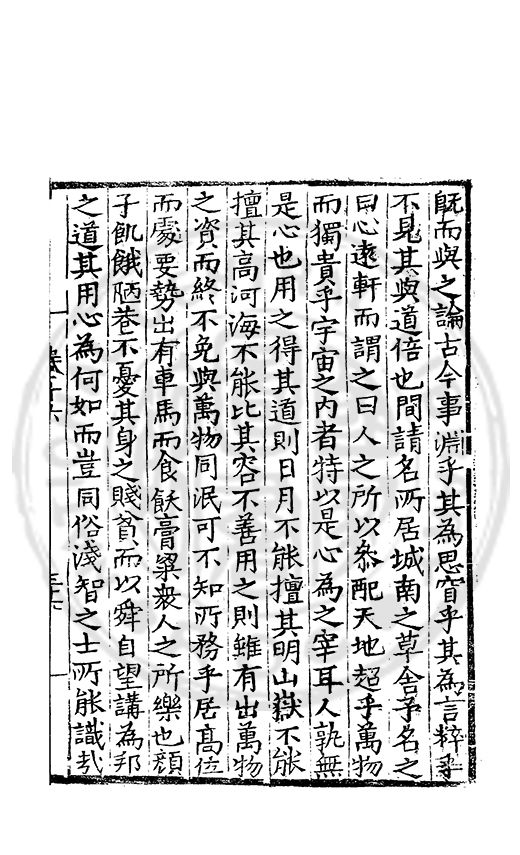 既而與之論古今事淵乎其為思窅乎其為言粹乎
不見其與道倍也間請名所居城南之草舍予名之
曰心遠軒而謂之曰人之所以參配天地超乎萬物
而獨貴乎宇宙之內者特以是心為之宰耳人孰無
是心也用之得其道則日月不能擅其明山嶽不能
擅其高河海不能比其容不善用之則雖有出萬物
之資而終不免與萬物同泯可不知所務乎居高位
而處要勢出有車馬而食飫膏粱衆人之所樂也顏
子飢餓陋巷不憂其身之賤貧而以舜自望講為邦
之道其用心為何如而豈同俗淺智之士所能識哉